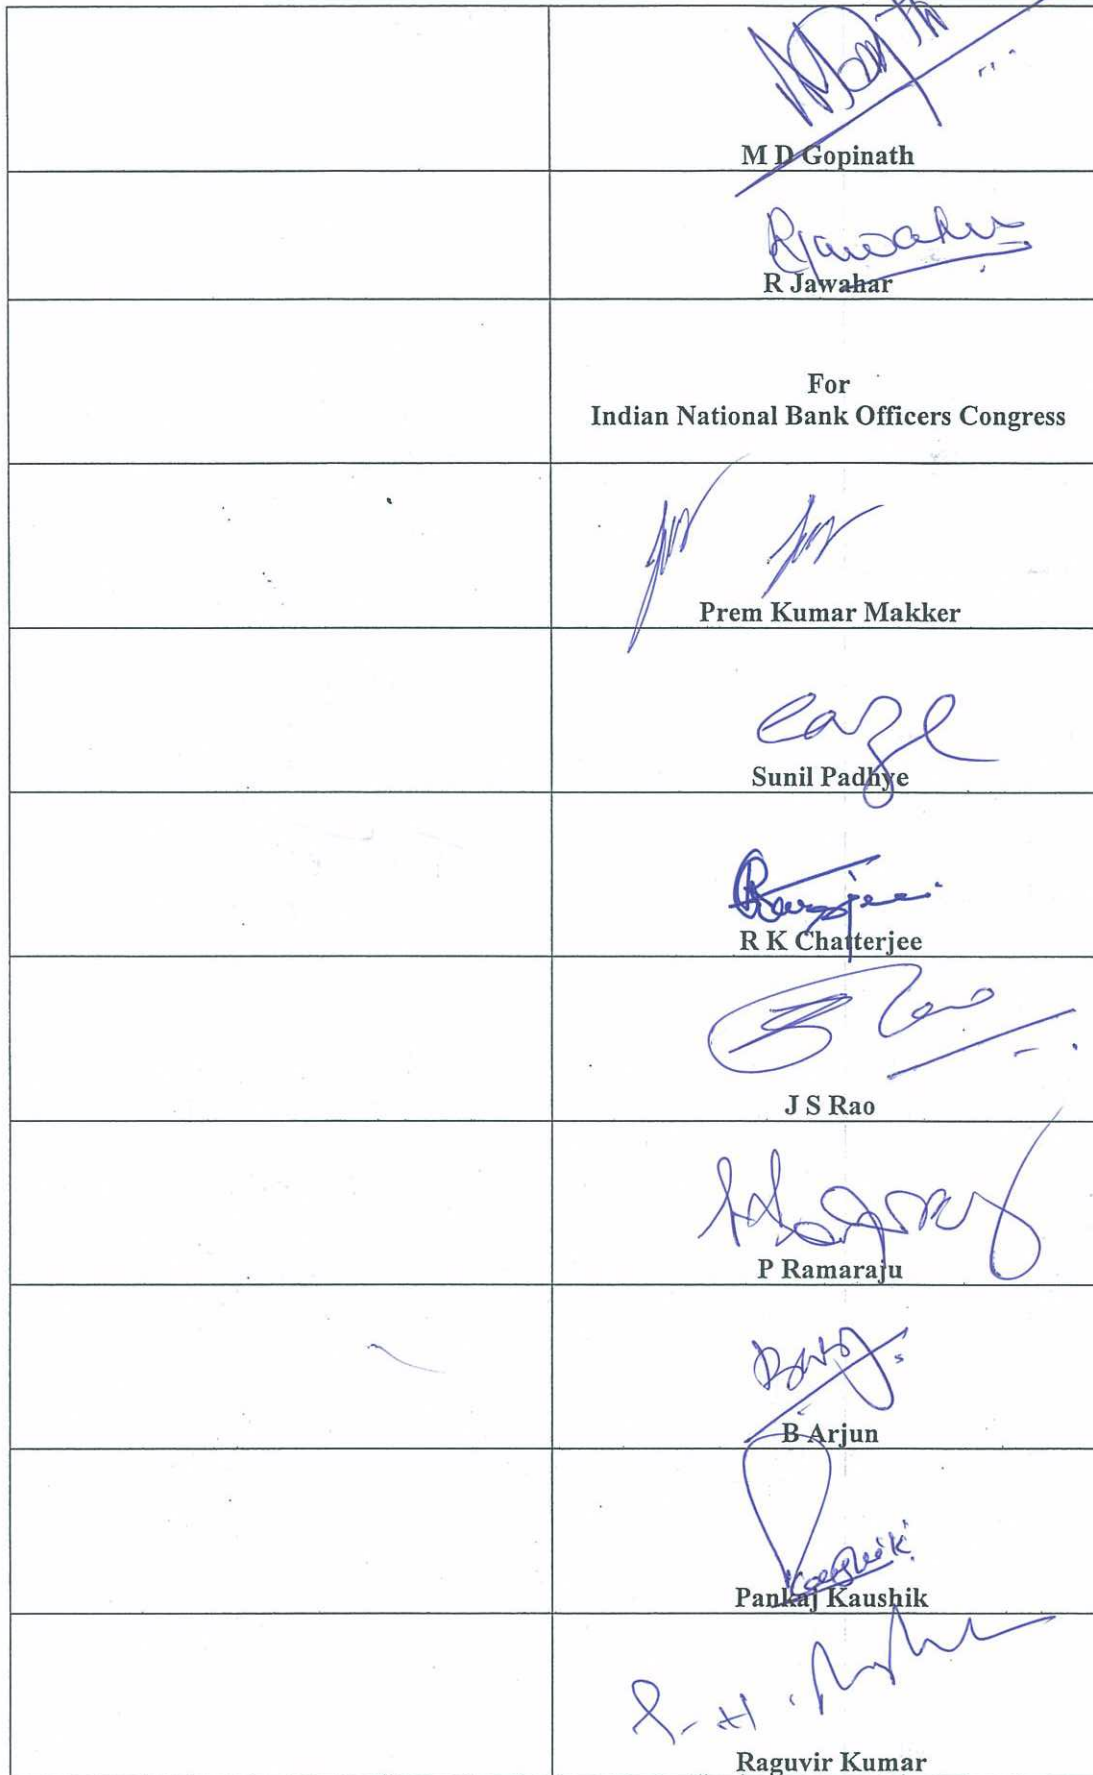 M D Gopinath
Rjawahar
R Jawahar
For
Indian National Bank Officers Congress
Prem Kumar Makker
Sunil Padhye
R K Chatterjee
Rao
J S Rao
P Ramaraju
B Arjun
Kaushik
Pankaj Kaushik
Raguvir Kumar